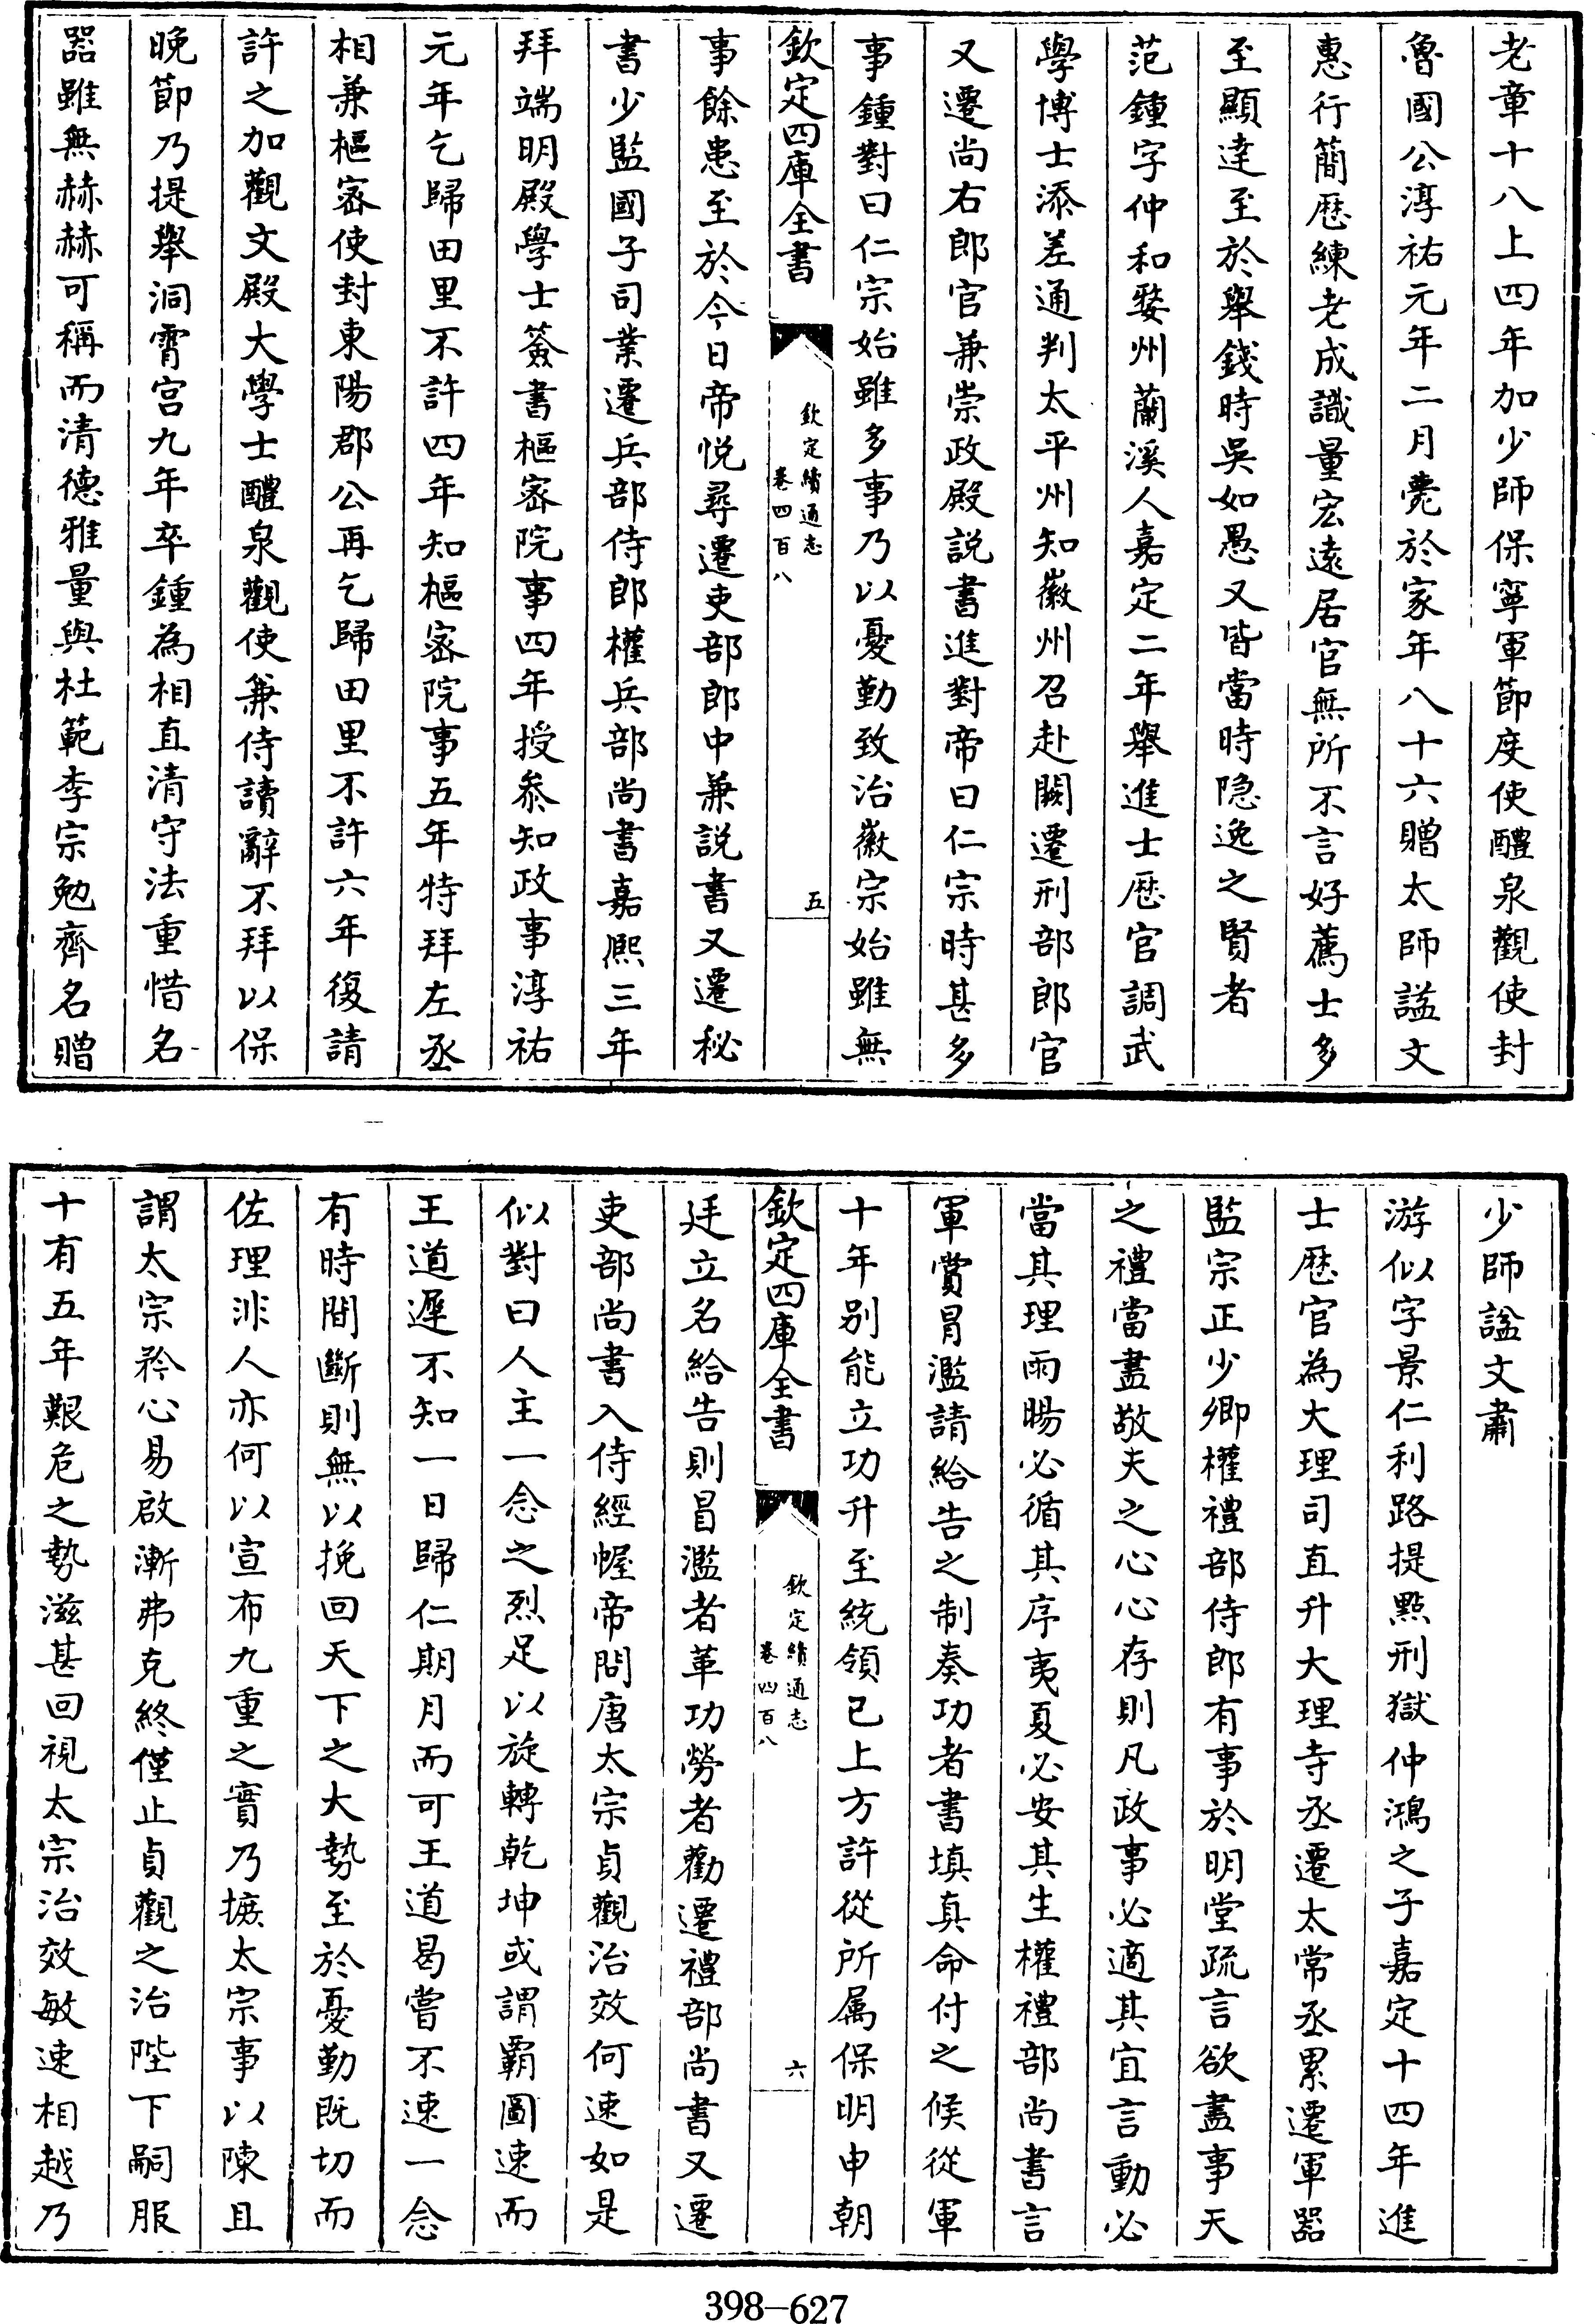 老章十八上四年加少師保寧軍節度使醴泉觀使封
魯國公淳祐元年二月薨於家年八十六贈太師諡文
惠行簡歴練老成識量宏遠居官無所不言好薦士多
至顯達至於舉錢時吳如愚又皆當時隐逸之賢者
范鍾字仲和婺州蘭溪人嘉定二年舉進士歴官調武
學博士添差通判太平州知徽州召赴闕遷刑部郎官
又遷尚右郎官兼崇政殿説書進對帝曰仁宗時甚多
事鍾對曰仁宗始雖多事乃以憂勤致治徽宗始雖無
欽定四庫全書
欽定續通志
卷四百八
五
事餘患至於今日帝悦尋遷吏部郎中兼説書又遷秘
書少監國子司業遷兵部侍郎權兵部尚書嘉熙三年
拜端明殿學士簽書樞密院事四年授参知政事淳祐
元年乞歸田里不許四年知樞密院事五年特拜左丞
相兼樞密使封東陽郡公再乞歸田里不許六年復請
許之加觀文殿大學士醴泉觀使兼侍讀辭不拜以保
晚節乃提舉洞霄宫九年卒鍾為相直清守法重惜名
器雖無赫赫可稱而清德雅量與杜範李宗勉齊名贈
少師諡文肅
游似字景仁利路提點刑獄仲鴻之子嘉定十四年進
士歴官為大理司直升大理寺丞遷太常丞累遷軍器
監宗正少卿權禮部侍郎有事於明堂疏言欲盡事天
之禮當盡敬天之心心存則凡政事必適其宜言動必
當其理雨暘必循其序夷夏必安其生權禮部尚書言
軍賞冐濫請給告之制奏功者書填真命付之候從軍
十年别能立功升至統領已上方許從所属保明申朝
欽定四庫全書
欽定續通志
卷四百八
六
廷立名給告則冒濫者革功勞者勸遷禮部尚書又遷
吏部尚書入侍經幄帝問唐太宗貞觀治效何速如是
似對曰人主一念之烈足以旋轉乾坤或謂霸圖速而
王道遲不知一日歸仁期月而可王道曷嘗不速一念
有時間斷則無以挽回天下之大勢至於憂勤既切而
佐理非人亦何以宣布九重之實乃摭太宗事以陳且
謂太宗矜心易啟漸弗克終僅止貞觀之治陛下嗣服
十有五年艱危之勢滋甚回視太宗治效敏速相越乃
398-627